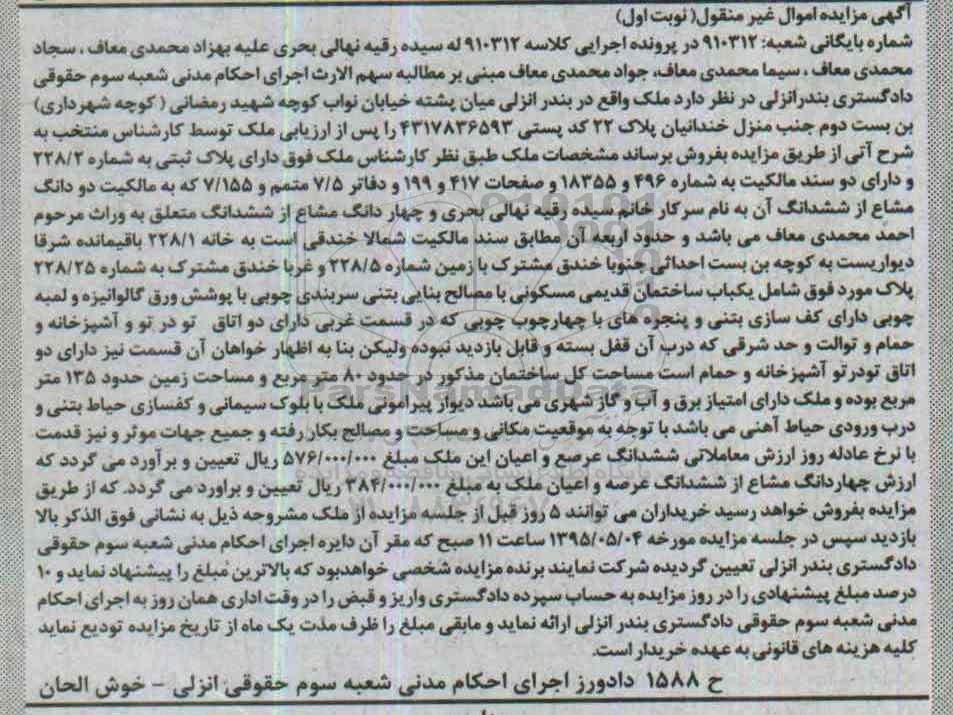 آگهی مزایده اموال غیر منقول( نوبت اول)
شماره بایگانی شعبه: ۹۱۰۳۱۲ در پرونده اجرایی کلاسه ۹۱۰۳۱۲ له سیده رقیه نهالی بحری علیه بهزاد محمدی معاف ، سجاد
محمدی معاف ، سیما محمدی معاف، جواد محمدی معاف مبنی بر مطالبه سهم الارث اجرای احکام مدنی شعبه سوم حقوقی
دادگستری بندرانزلی در نظر دارد ملک واقع در بندر انزلی میان پشته خیابان نواب کوچه شهید رمضانی ( کوچه شهرداری)
بن بست دوم جنب منزل خندانیان پلاک ۲۲ کد پستی ۴۳۱۷۸۳۶۵۹۳ را پس از ارزیابی ملک توسط کارشناس منتخب به
شرح آتی از طریق مزایده بفروش برساند مشخصات ملک طبق نظر کارشناس ملک فوق دارای پلاک ثبتی به شماره ۲۲۸/۲
و دارای دو سند مالکیت به شماره ۴۹۶ و ۱۸۳۵۵ و صفحات ۴۱۷ و ۱۹۹ و دفاتر ۷/۵ متمم و ۷/۱۵۵ که به مالکیت دو دانگ
مشاع از ششدانگ آن به نام سرکار خانم سیده رقیه نهالی بحری و چهار دانگ مشاع از ششدانگ متعلق به وراث مرحوم
احمد محمدی معاف می باشد و حدود اربعه آن مطابق سند مالکیت شمالا خندقی است به خانه ۲۲۸/۱ باقیمانده شرقا
دیواریست به کوچه بن بست احداثی جنوبا خندق مشترک با زمین شماره ۲۲۸/۵ و غربا خندق مشترک به شماره ۲۲۸/۲۵
پلاک مورد فوق شامل یکباب ساختمان قدیمی مسکونی با مصالح بنایی بتنی سربندی چوبی با پوشش ورق گالوانیزه و لمبه
چوبی دارای کف سازی بتنی و پنجره های با چهارچوب چوبی که در قسمت غربی دارای دو اتاق تو در تو و آشپزخانه و
حمام و توالت و حد شرقی که درب آن قفل بسته و قابل بازدید نبوده ولیکن بنا به اظهار خواهان آن قسمت نیز دارای دو
اتاق تودرتو آشپزخانه و حمام است مساحت کل ساختمان مذکور در حدود ۸۰ متر مربع و مساحت زمین حدود ۱۳۵ متر
مربع بوده و ملک دارای امتیاز برق و آب و گاز شهری می باشد دیوار پیرامونی ملک با بلوک سیمانی و کفسازی حیاط بتنی و
درب ورودی حیاط آهنی می باشد با توجه به موقعیت مکانی و مساحت و مصالح بکار رفته و جمیع جهات موثر و نیز قدمت
با نرخ عادله روز ارزش معاملاتی ششدانگ عرصع و اعیان این ملک مبلغ ۵۷۶/۰۰۰/۰۰۰ ریال تعیین و برآورد می گردد که
ارزش چهاردانگ مشاع از ششدانگ عرصه و اعیان ملک به مبلغ ۳۸۴/۰۰۰/۰۰۰ ریال تعیین و براورد می گردد. که از طریق
مزایده بفروش خواهد رسید خریداران می توانند ۵ روز قبل از جلسه مزایده از ملک مشروحه ذیل به نشانی فوق الذکر بالا
بازدید سپس در جلسه مزایده مورخه ۱۳۹۵/۰۵/۰۴ ساعت ۱۱ صبح که مقر آن دایره اجرای احکام مدنی شعبه سوم حقوقی
دادگستری بندر انزلی تعیین گردیده شرکت نمایند برنده مزایده شخصی خواهدبود که بالاترین مبلغ را پیشنهاد نماید و ۱۰
درصد مبلغ پیشنهادی را در روز مزایده به حساب سپرده دادگستری واریز و قبض را در وقت اداری همان روز به اجرای احکام
مدنی شعبه سوم حقوقی دادگستری بندر انزلی ارائه نماید و مابقی مبلغ را ظرف مدت یک ماه از تاریخ مزایده تودیع نماید
کلیه هزینه های قانونی به عهده خریدار است.
ح ۱۵۸۸ دادورز اجرای احکام مدنی شعبه سوم حقوقی انزلی - خوش الحان
ParsNamadData